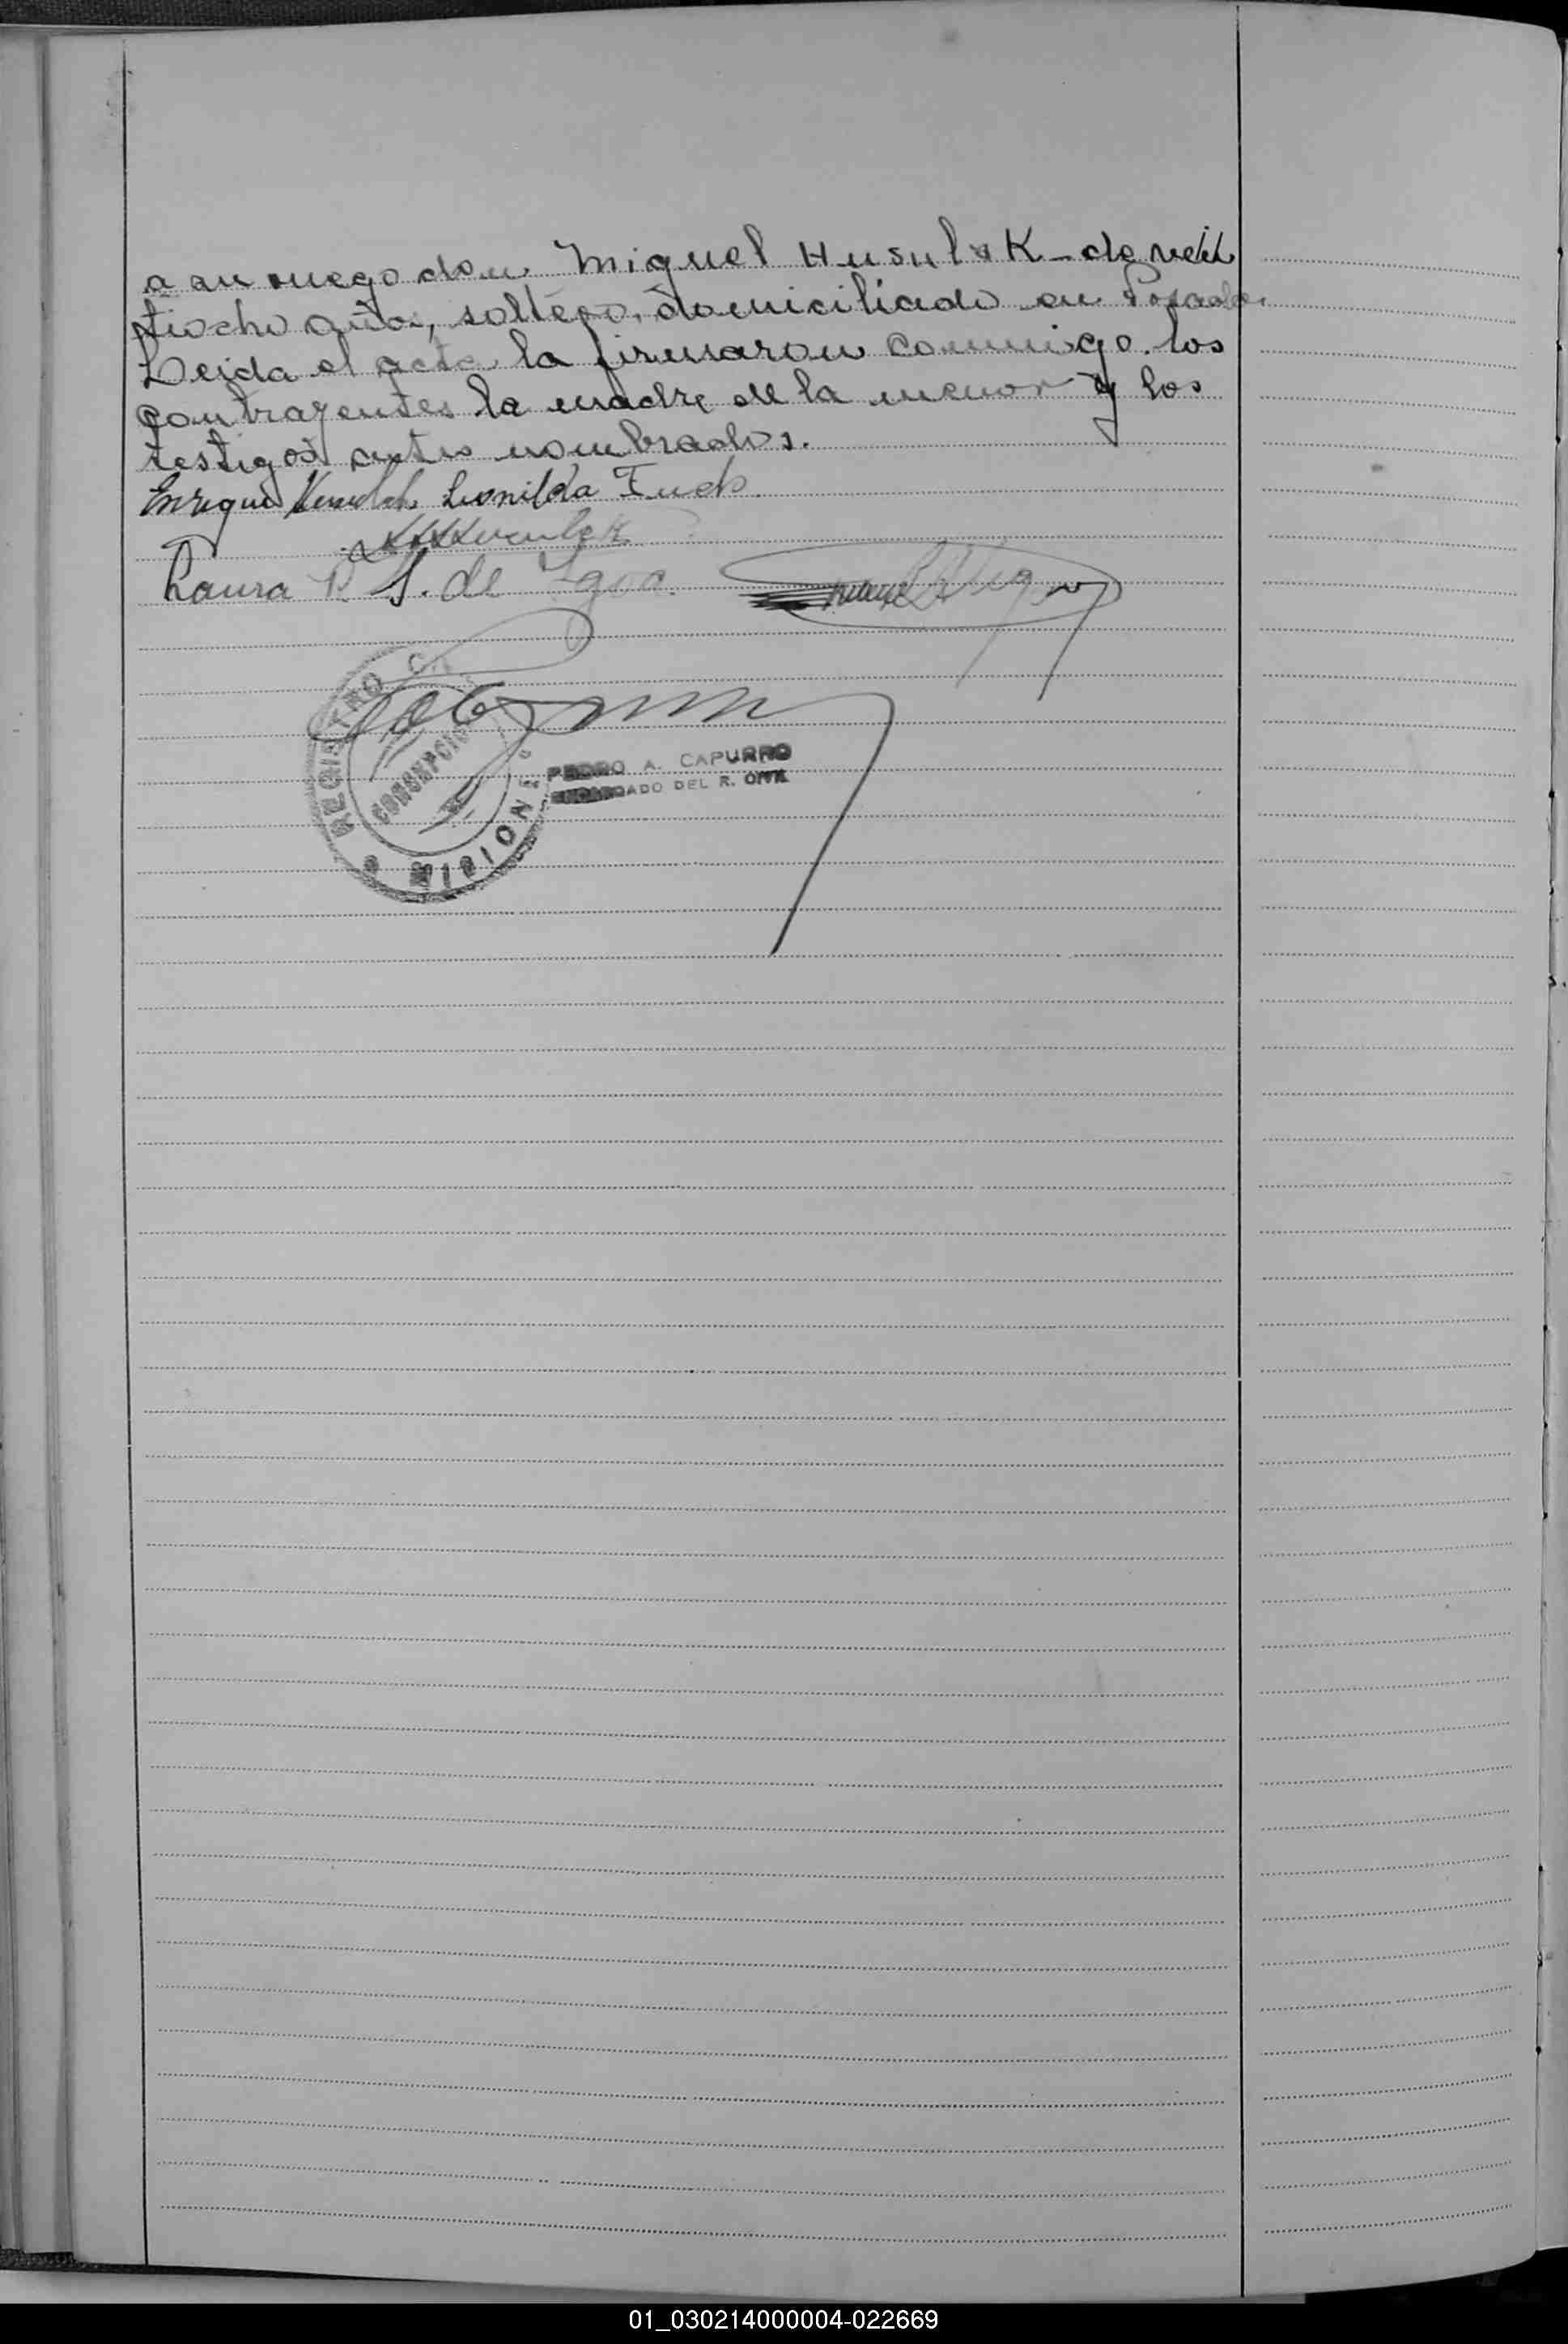 a su ruego don Miguel Husulak - de vein
tiocho años, soltero, domiciliado en Posadas.
Leida el acta la firmaron conmigo los
contrayentes la madre de la menor y los
testigos antes nombrados.
Enrique Leonilda Fuch
Laura P. S. de Igoa.
REGISTRO CIVIL
CONCEPCION
MISIONES
PEDRO A. CAPURRO
ENCARGADO DEL R. CIVIL
01_030214000004-022669